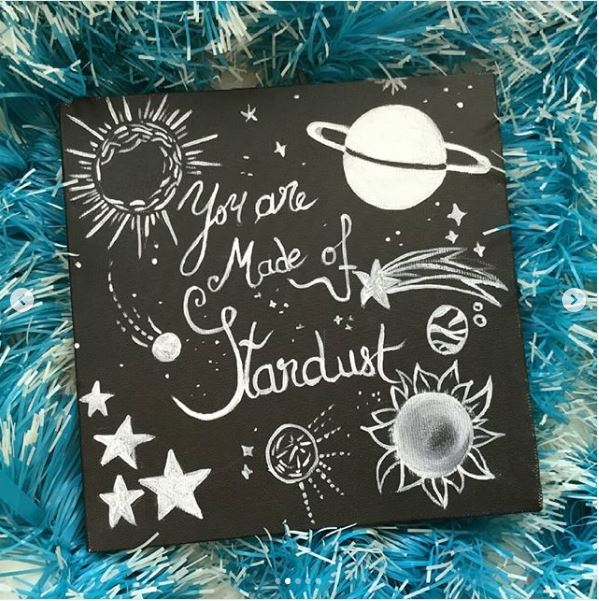 You are
Made of
Stardust